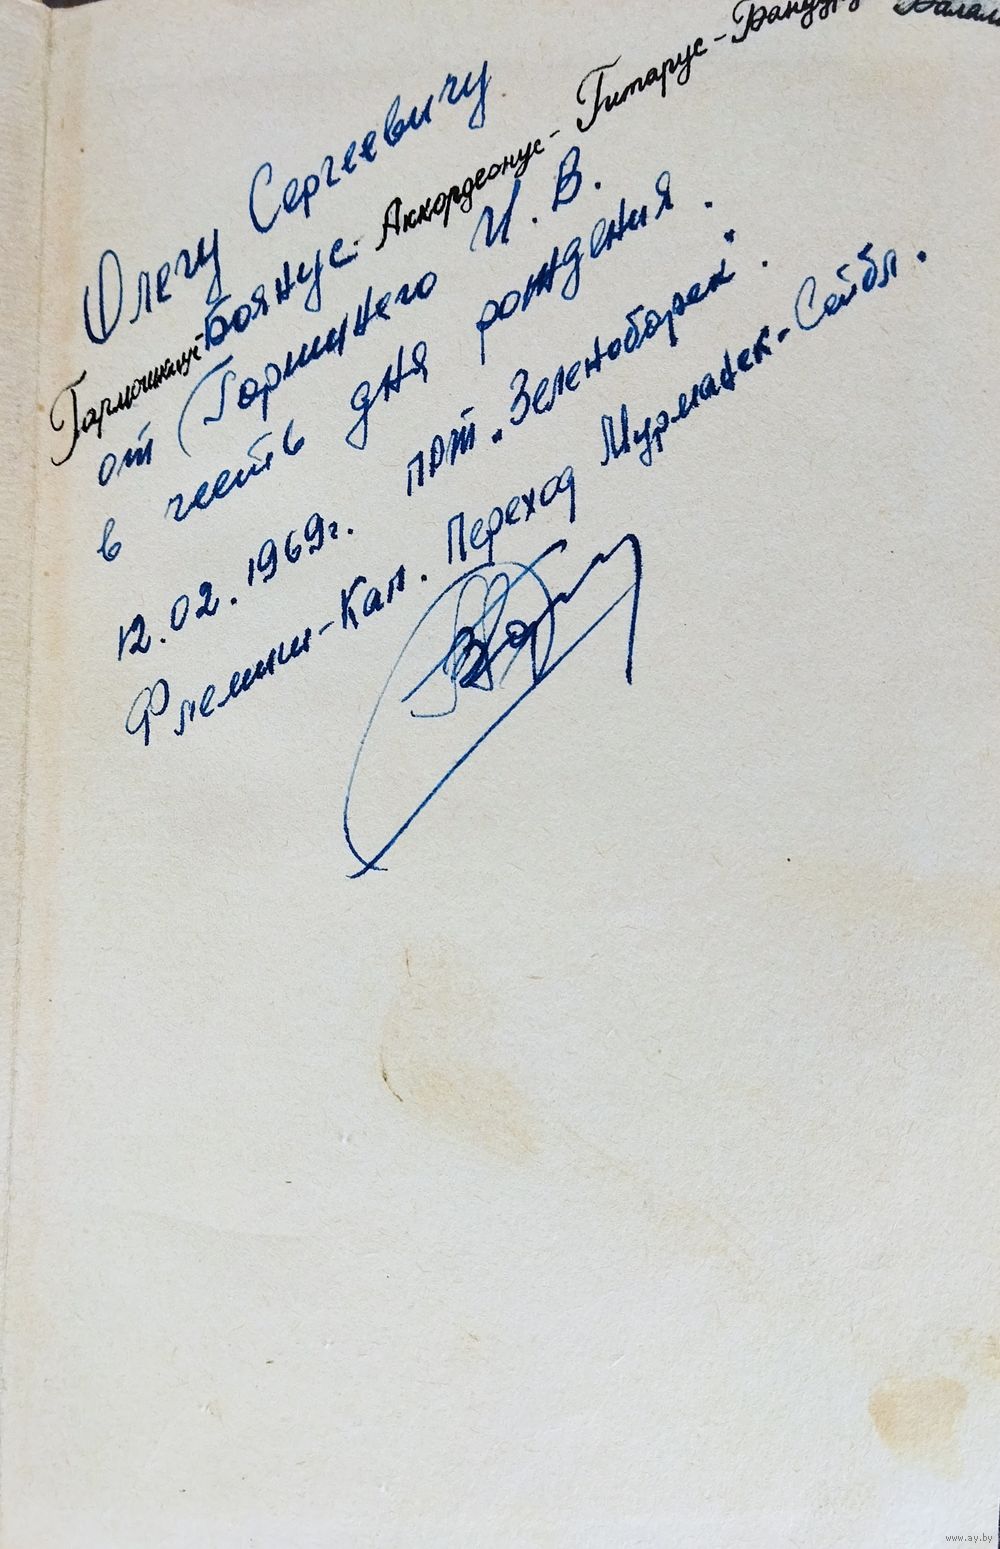 Олегу Сергеевичу
Гармошкинус-Боянус-Аккордеонус-Гитарус-Бандурус-Балал
от Горшнего И.В.
в честь дня рождения.
12.02.1969г. ПРТ. „Зеленоборск".
Флемиш-Кап. Переход Мурманск-Сейбл.
www.ay.by